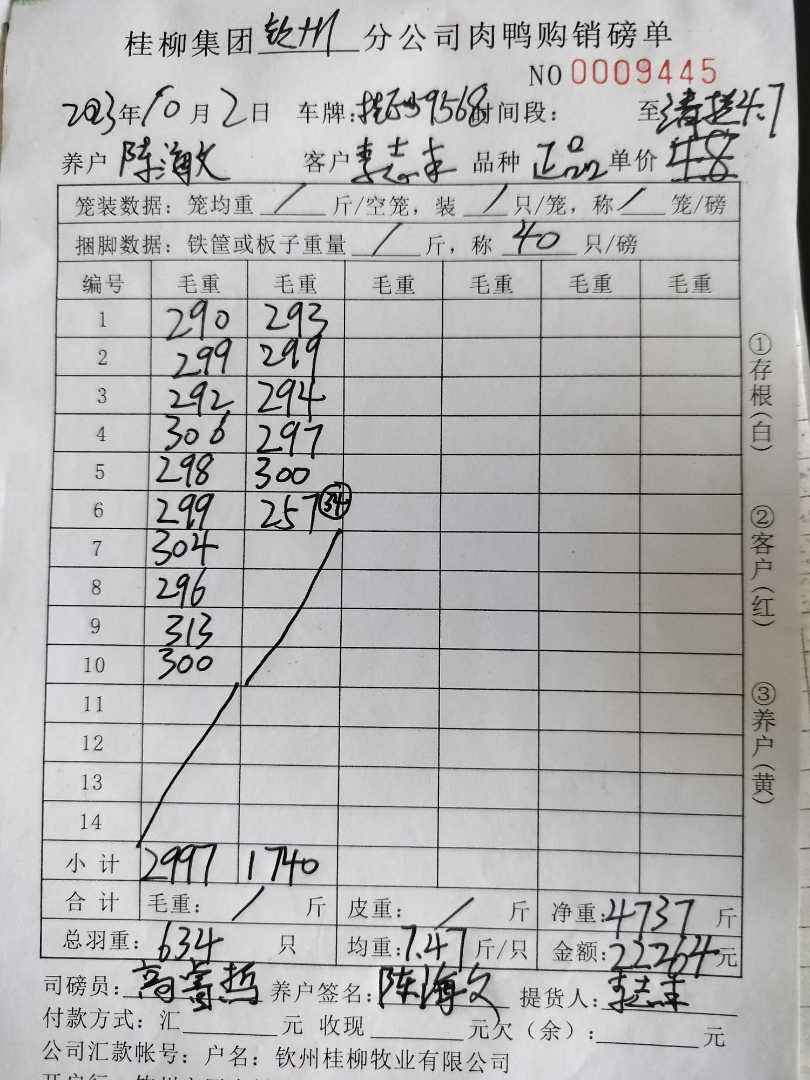 桂柳集团钦州分公司肉鸭购销磅单
NO 0009445
2023年10月2日 车牌:桂 9568 时间段: 至 4.7
养户 陈海文 客户 李志丰 品种 正品 单价 4.8
笼装数据:笼均重 / 斤/空笼,装 / 只/笼,称 / 笼/磅
捆脚数据:铁筐或板子重量 / 斤,称 40 只/磅
编号 毛重 毛重 毛重 毛重 毛重 毛重
1 290 293
2 299 299
3 292 294
4 306 297
5 298 300
6 299 257 34
7 304
8 296
9 313
10 300
11
12
13
14
小计 2997 1740
合计 毛重: / 斤 皮重: / 斤 净重:4737 斤
总羽重:634 只 均重:7.47 斤/只 金额:22264元
司磅员: 养户签名:陈海文 提货人:李志丰
付款方式:汇 元 收现 元欠(余): 元
公司汇款帐号:户名:钦州桂柳牧业有限公司
①存根(白)
②客户(红)
③养户(黄)